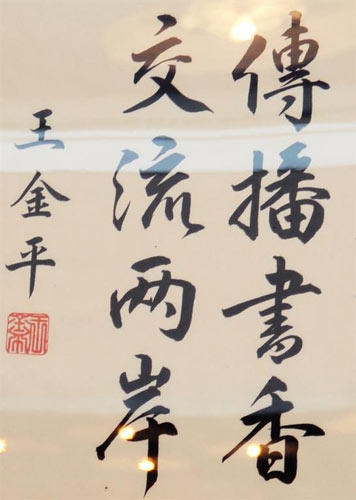 傳播書香
交流两岸
王金平